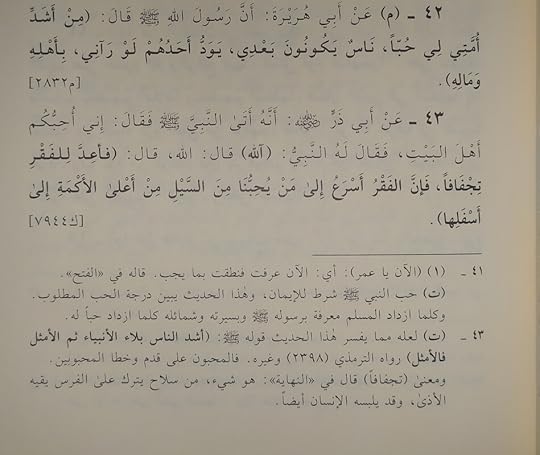 ٤٢ ـ (م) عَنْ أَبِي هُرَيْرَةَ: أَنَّ رَسُولَ اللهِ ﷺ قَالَ: (مِنْ أَشَدِّ
أُمَّتِي لِي حُبّاً، نَاسٌ يَكُونُونَ بَعْدِي، يَوَدُّ أَحَدُهُمْ لَوْ رَآنِي، بِأَهْلِهِ
وَمَالِهِ). [م٢٨٣٢]
٤٣ ـ عَنْ أَبِي ذَرٍّ رضي الله عنه: أَنَّهُ أَتَى النَّبِيَّ ﷺ فَقَالَ: إِني أُحِبُّكُم
أَهْلَ البَيْتِ، فَقَالَ لَهُ النَّبِيُّ: (آلله) قال: الله، قال: (فأعِدَّ لِلفَقْرِ
تِجْفَافاً، فَإِنَّ الفَقْرَ أَسْرَعُ إِلىٰ مَنْ يُحِبُّنَا مِنَ السَّيْلِ مِنْ أَعْلىٰ الأَكْمَةِ إِلىٰ
أَسْفَلِها). [ك٧٩٤٤]
٤١ ـ (١) (الآن يا عمر): أي: الآن عرفت فنطقت بما يجب. قاله في «الفتح».
(ت) حب النبي ﷺ شرط للإيمان، وهٰذا الحديث يبين درجة الحب المطلوب.
وكلما ازداد المسلم معرفة برسوله ﷺ وبسيرته وشمائله كلما ازداد حباً له.
٤٣ ـ (ت) لعله مما يفسر هٰذا الحديث قوله ﷺ: (أشد الناس بلاء الأنبياء ثم الأمثل
فالأمثل) رواه الترمذي (٢٣٩٨) وغيره. فالمحبون على قدم وخطا المحبوبين.
ومعنىٰ (تجفافاً) قال في «النهاية»: هو شيء، من سلاح يترك علىٰ الفرس يقيه
الأذىٰ، وقد يلبسه الإنسان أيضاً.